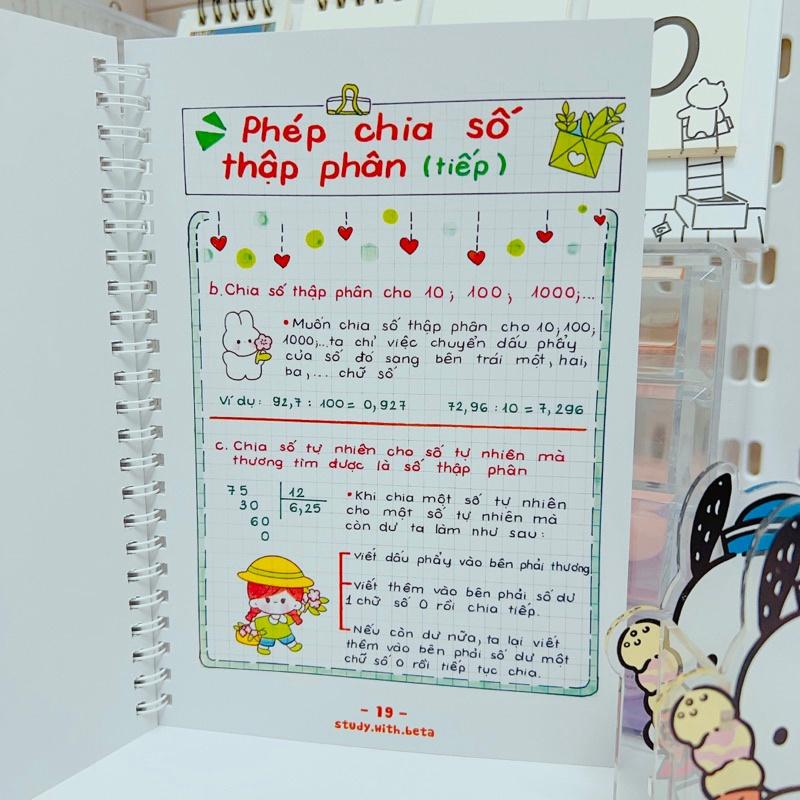 Phép chia số
thập phân (tiếp)
b. Chia số thập phân cho 10; 100, 1000;...
• Muốn chia số thập phân cho 10; 100;
1000;... ta chỉ việc chuyển dấu phẩy
của số đó sang bên trái một, hai,
ba,... chữ số
Ví dụ: 92,7 : 100 = 0,927 72,96 : 10 = 7,296
c. Chia số tự nhiên cho số tự nhiên mà
thương tìm được là số thập phân
75 12
30 6,25
60
0
• Khi chia một số tự nhiên
cho một số tự nhiên mà
còn dư ta làm như sau:
Viết dấu phẩy vào bên phải thương.
Viết thêm vào bên phải số dư
1 chữ số 0 rồi chia tiếp.
Nếu còn dư nữa, ta lại viết
thêm vào bên phải số dư một
chữ số 0 rồi tiếp tục chia.
- 19 -
study.with.beta